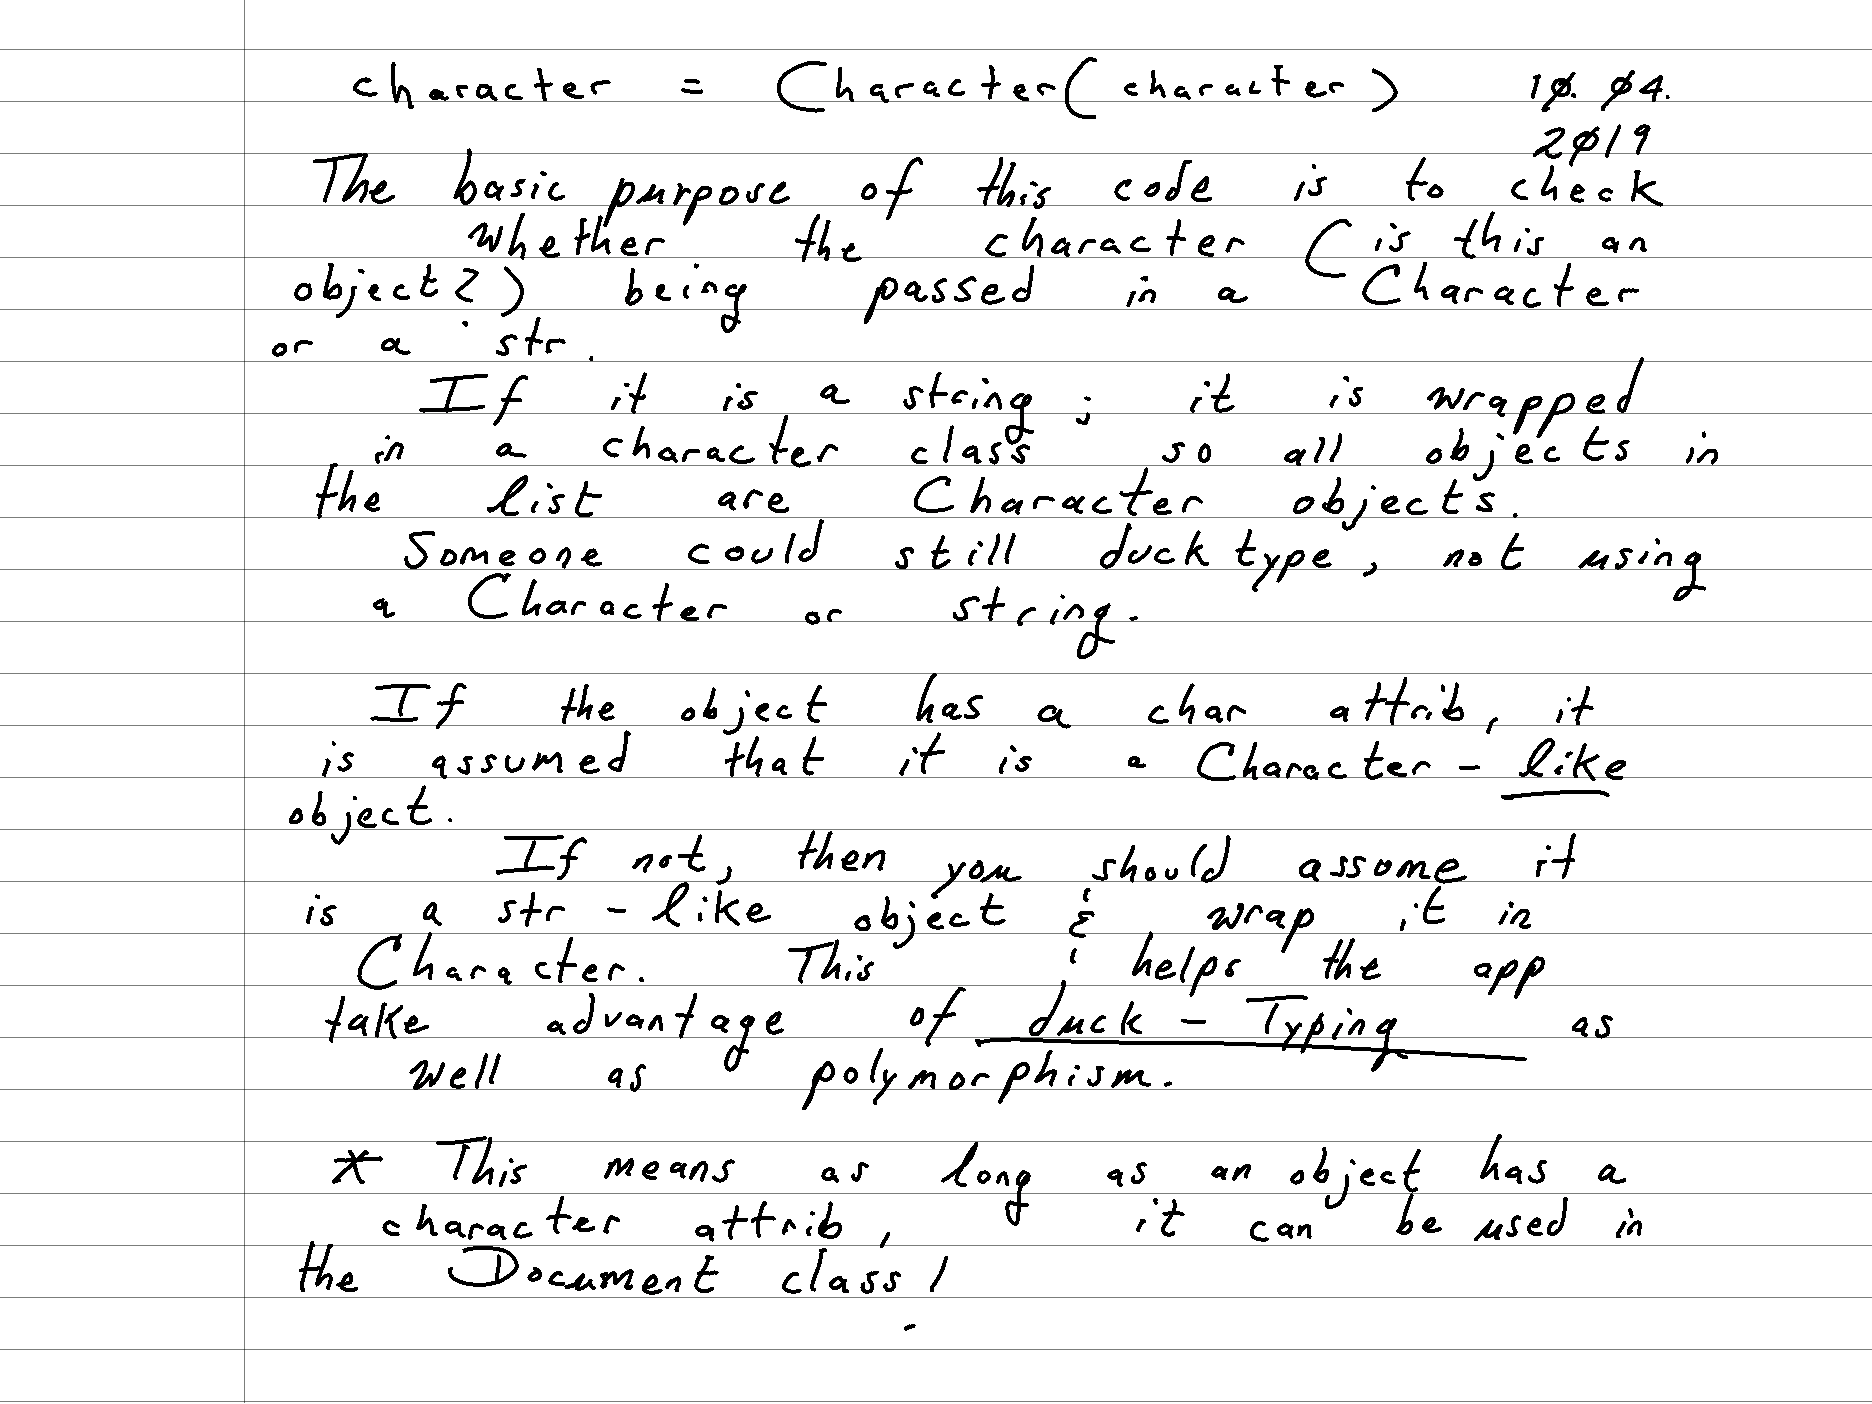 character = Character( character ) 10. 04.
2019
The basic purpose of this code is to check
whether the character ( is this an
object? ) being passed in a Character
or a str.
If it is a string; it is wrapped
in a character class so all objects in
the list are Character objects.
Someone could still duck type, not using
a Character or string.
If the object has a char attrib, it
is assumed that it is a Character - like
object.
If not, then you should assume it
is a str - like object & wrap it in
Character. This helps the app
take advantage of duck - Typing as
well as polymorphism.
* This means as long as an object has a
character attrib, it can be used in
the Document class!